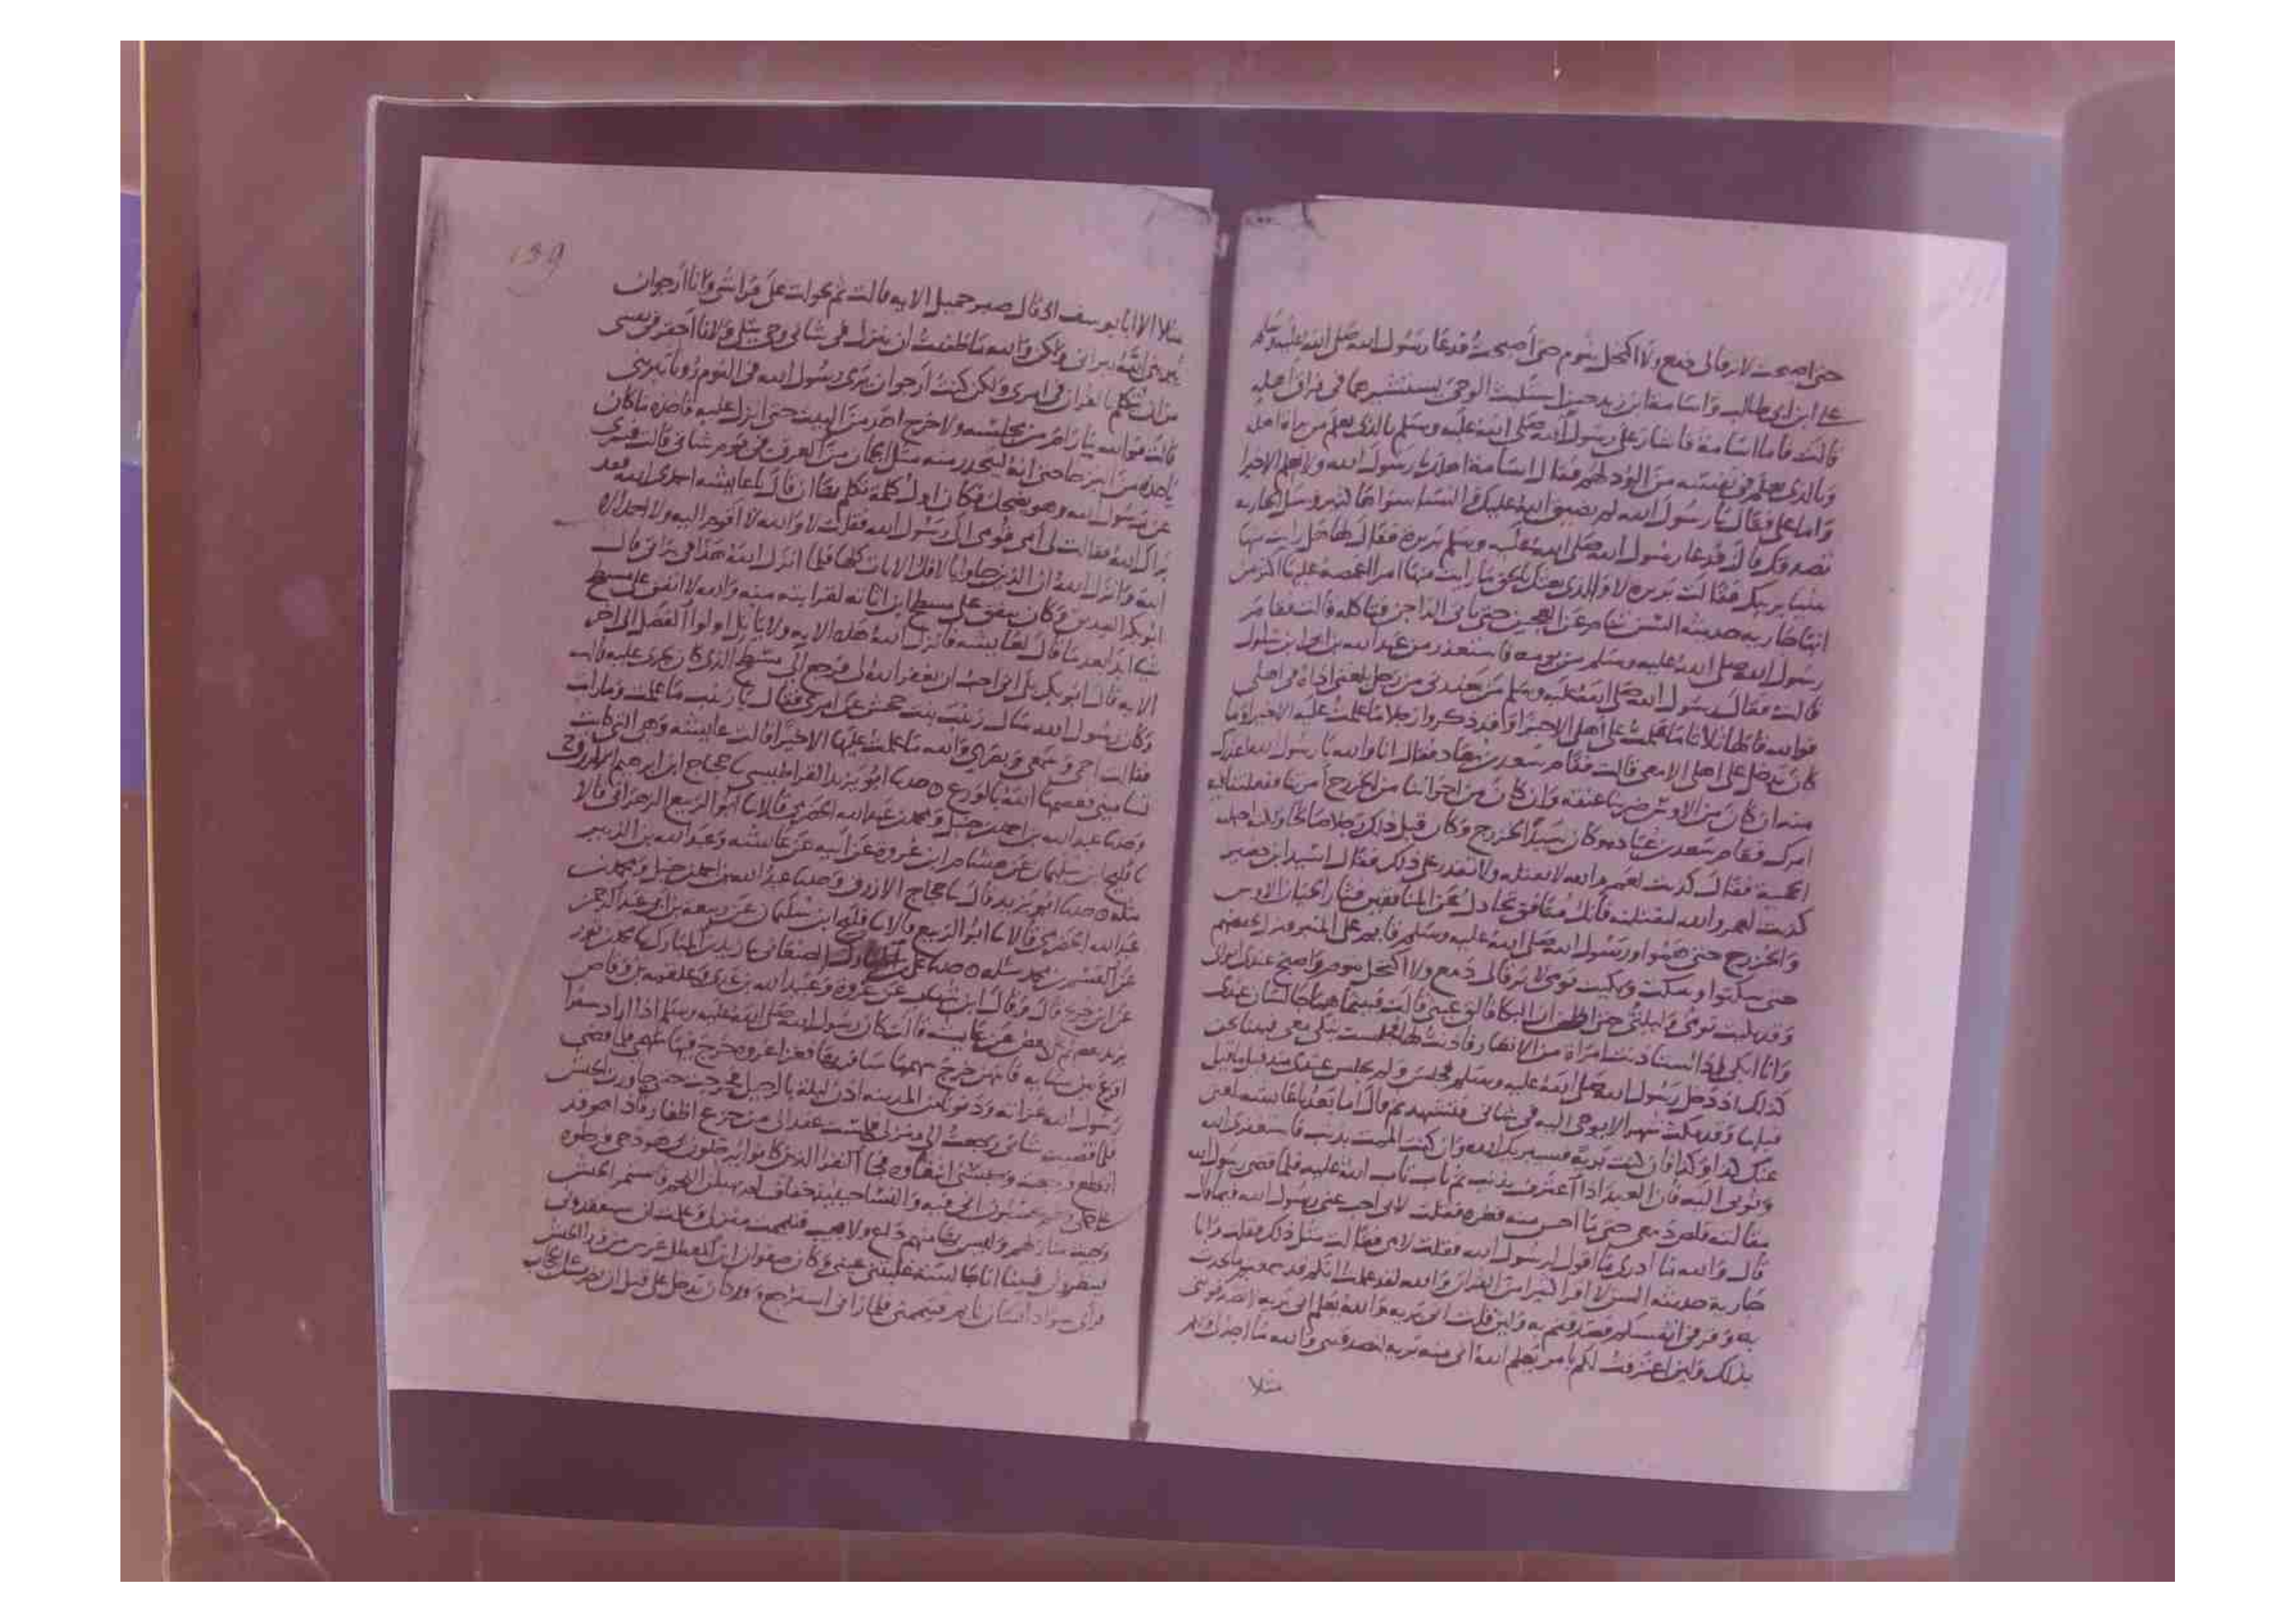 حتى اصبحت لا يرقا لى دمع ولا اكتحل بنوم حتى أصبحت فدعا رسول الله صلى الله عليه وسلم
على ابن ابى طالب واسامة ابن زيد حين استلبث الوحى يستشيرهما فى فراق اهله
قالت فاما اسامة فاشار على رسول الله صلى الله عليه وسلم بالذى يعلم من براة اهله
وبالذى يعلم فى نفسه من الود لهم فقال اسامة اهلك يا رسول الله ولا نعلم الا خيرا
واما على فقال يا رسول الله لم يضيق الله عليك والنسا سواها كثير وسل الجاريه
تصدقك قالت فدعا رسول الله صلى الله عليه وسلم بريرة فقال لها هل رايت منها
شيئا يريبك فقالت بريره لا والذى بعثك بالحق ما رايت منها امرا اغمصه عليها اكثر من
انها جاريه حديثه السن تنام عن العجين حتى ياتى الداجن فياكله قالت فقام
رسول الله صلى الله عليه وسلم من يومه فاستعذر من عبد الله بن ابى ابن سلول
قالت فقال رسول الله صلى الله عليه وسلم من يعذرنى من رجل بلغنى اذاه فى اهلى
فوالله قالها ثلاثا ما علمت على أهلى الا خيرا وقد ذكروا رجلا ما علمت عليه الا خيرا وما
كان يدخل على اهلى الا معى قالت فقام سعد بن معاذ فقال انا والله يا رسول الله اعذرك
منه ان كان من الاوس ضربنا عنقه وان كان من اخواننا من الخزرج أمرتنا ففعلنا فيه
امرك فقام سعد بن عباده وكان سيد الخزرج وكان قبل ذلك رجلا صالحا ولكن احملته
الحمية فقال كذبت لعمر والله لا تقتله ولا تقدر على ذلك فقال اسيد ابن حضير
كذبت لعمر والله لنقتلنه فانك منافق تجادل عن المنافقين فثار الحيان الاوس
والخزرج حتى هموا ورسول الله صلى الله عليه وسلم قايم على المنبر فنزل فخفضهم
حتى سكتوا وسكت وبكيت يومى لا يرقا لى دمع ولا اكتحل بنوم واصبح عندى ابواى
وقد بكيت يومى وليلتى حتى اظن ان البكا فالق كبدى قالت فبينما هما جالسان عندى
وانا ابكى اذ استاذنت امراة من الانصار فاذنت لها فجلست تبكى معى فبينا نحن
كذلك اذ دخل رسول الله صلى الله عليه وسلم فجلس ولم يجلس عندى منذ قيل ما قيل
قبلها وقد مكث شهرا لا يوحى اليه فى شانى فتشهد ثم قال اما بعد يا عايشه بلغنى
عنك كذا وكذا فان كنت برية فسيبريك الله وان كنت الممت بذنب فاستغفرى الله
وتوبى اليه فان العبد اذا أعترف بذنب ثم تاب تاب الله عليه فلما قضى رسول الله
مقالته قلص دمعى حتى ما احس منه قطره فقلت لابى اجب عنى رسول الله فيما قال
قال والله ما أدرى ما اقول لرسول الله فقلت لامى فقالت مثل ذلك فقلت وانا
جارية حديثه السن لا اقرا كثيرا من القران والله لقد علمت انكم قد سمعتم ما تحدث
به وقر فى انفسكم فصدقتم به ولين قلت انى بريه والله يعلم انى بريه لا تصدقونى
بذلك ولين اعترفت لكم بامر يعلم الله انى منه بريه لتصدقنى والله ما اجد لى ولكم
مثلا
159
مثلا الا ابا يوسف اذ قال صبر جميل الايه قالت ثم تحولت على فراشى وانا ارجوان
يبرينى الله ببراتى ولكن والله ما ظننت أن ينزل فى شانى وحى يتلى ولانا احقر فى نفسى
من ان يتكلم بالقران فى امرى ولكن كنت ارجوان يرى رسول الله فى النوم رويا تبرينى
قالت فوالله ما رام من مجلسه ولا خرج احد من البيت حتى انزل عليه فاخذه ما كان
ياخذه من البرحا حتى انه ليتحدر منه مثل الجمان من العرق فى يوم شات قالت فسرى
عن رسول الله وهو يضحك فكان اول كلمة تكلم بها ان قال يا عايشه احمدى الله فقد
براك الله فقالت لى أمى قومى الى رسول الله فقلت لا والله لا اقوم اليه ولا احمد الا
الله وانزل الله ان الذين جاوا بالافك الايات كلها فلما انزل الله هذا فى براتى قال
ابو بكر الصديق وكان ينفق على مسطح ابن اثاثه لقرابته منه والله لا انفق على مسطح
شيا ابدا بعد ما قال لعايشه فانزل الله هذه الايه ولا ياتل اولوا الفضل الى اخر
الايه قال ابو بكر بلى انى احب ان يغفر الله لى فرجع الى مسطح الذى كان يجرى عليه قالت
وكان رسول الله سال زينب بنت جحش عن امرى فقال يا زينب ما علمت وما رايت
فقالت احمى سمعى وبصرى والله ما علمت عليها الا خيرا قالت عايشه وهى التى كانت
تسامينى فعصمها الله بالورع ه حدثنا ابو يزيد القراطيسى ثنا حجاج ابن ابرهيم الازرق ح
وحدثنا عبد الله بن احمد بن حنبل ومحمد بن عبد الله الحضرمى قالا ثنا ابو الربيع الزهرانى قالا
ثنا فليح ابن سليمان عن هشام ابن عروه عن أبيه عن عايشه وعبد الله بن الزبير
مثله ه حدثنا ابو يزيد قال ثنا حجاج الازرق وحدثنا عبد الله بن احمد بن حنبل ومحمد بن
عبد الله الحضرمى قالا ثنا ابو الربيع قالا ثنا فليح ابن سليمان عن ربيعه بن ابى عبد الرحمن
عن القسم بن محمد مثله ه حدثنا على الصنعانى ثنا زيد بن المبارك ثنا محمد بن ثور
عن ابن جريج قال وقال ابن شهاب عن عروه وعبيد الله بن عدى وعلقمه بن وقاص
يزيد بعضهم على بعض عن عايشه قالت كان رسول الله صلى الله عليه وسلم اذا اراد سفرا
اقرع بين نسايه فايتهن خرج سهمها سافر بها فغزا غزوه خرج فيها سهمى فلما قضى
رسول الله غزاته ودنونا من المدينه اذن ليلة بالرحيل فخرجت حتى جاوزت الجيش
فلما قضيت شانى رجعت الى منزلى فلمست عقدا لى من جزع اظفار فاذا هو قد
انقطع فرجعت وحبسنى ابتغاوه فجا النفر الذين كانوا يرحلون لى هودجى فرحلوه
على بعيرى يحسبون انى فيه والنسا حينيذ خفاف لم يهبلن اللحم فاستمر الجيش
وجيت منازلهم وليس بها منهم داع ولا مجيب فتيممت منزلى وعلمت ان سيفقدونى
فبينا انا جالسة غلبتنى عينى وكان صفوان ابن المعطل عرس من ورا الجيش
فراى سواد انسان نايم فتيممنى فلما رانى استرجع وقد كان يدخل على قبل ان يضرب على الحجاب